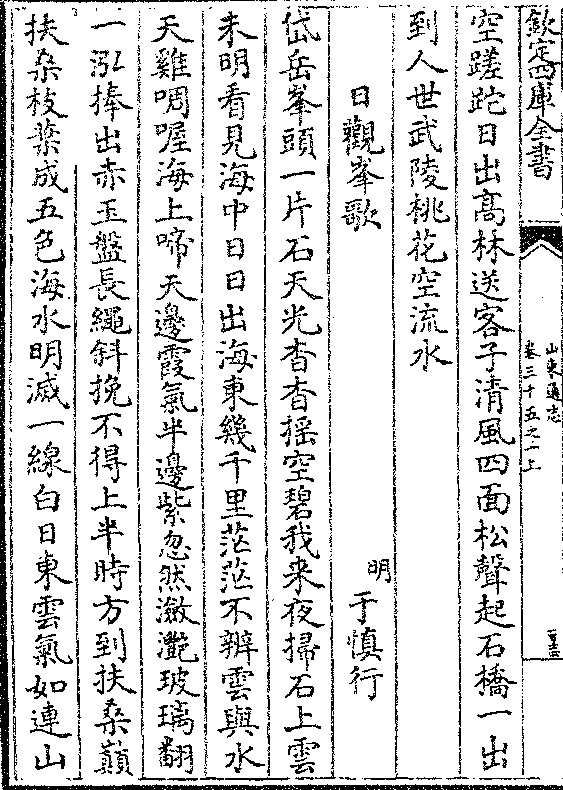 欽定四庫全書
山東通志
卷三十五之一上
空蹉跎日出高林送客子清風四面松聲起石橋一出
到人世武陵桃花空流水
日觀峯歌
明
于慎行
岱岳峯頭一片石天光杳杳揺空碧我来夜掃石上雲
未明看見海中日日出海東幾千里茫茫不辨雲與水
天雞啁喔海上啼天邊霞氣半邊紫忽然瀲灔玻璃翻
一泓捧出赤玉盤長繩斜挽不得上半時方到扶桑巔
扶桑枝葉成五色海水明滅一線白日東雲氣如連山